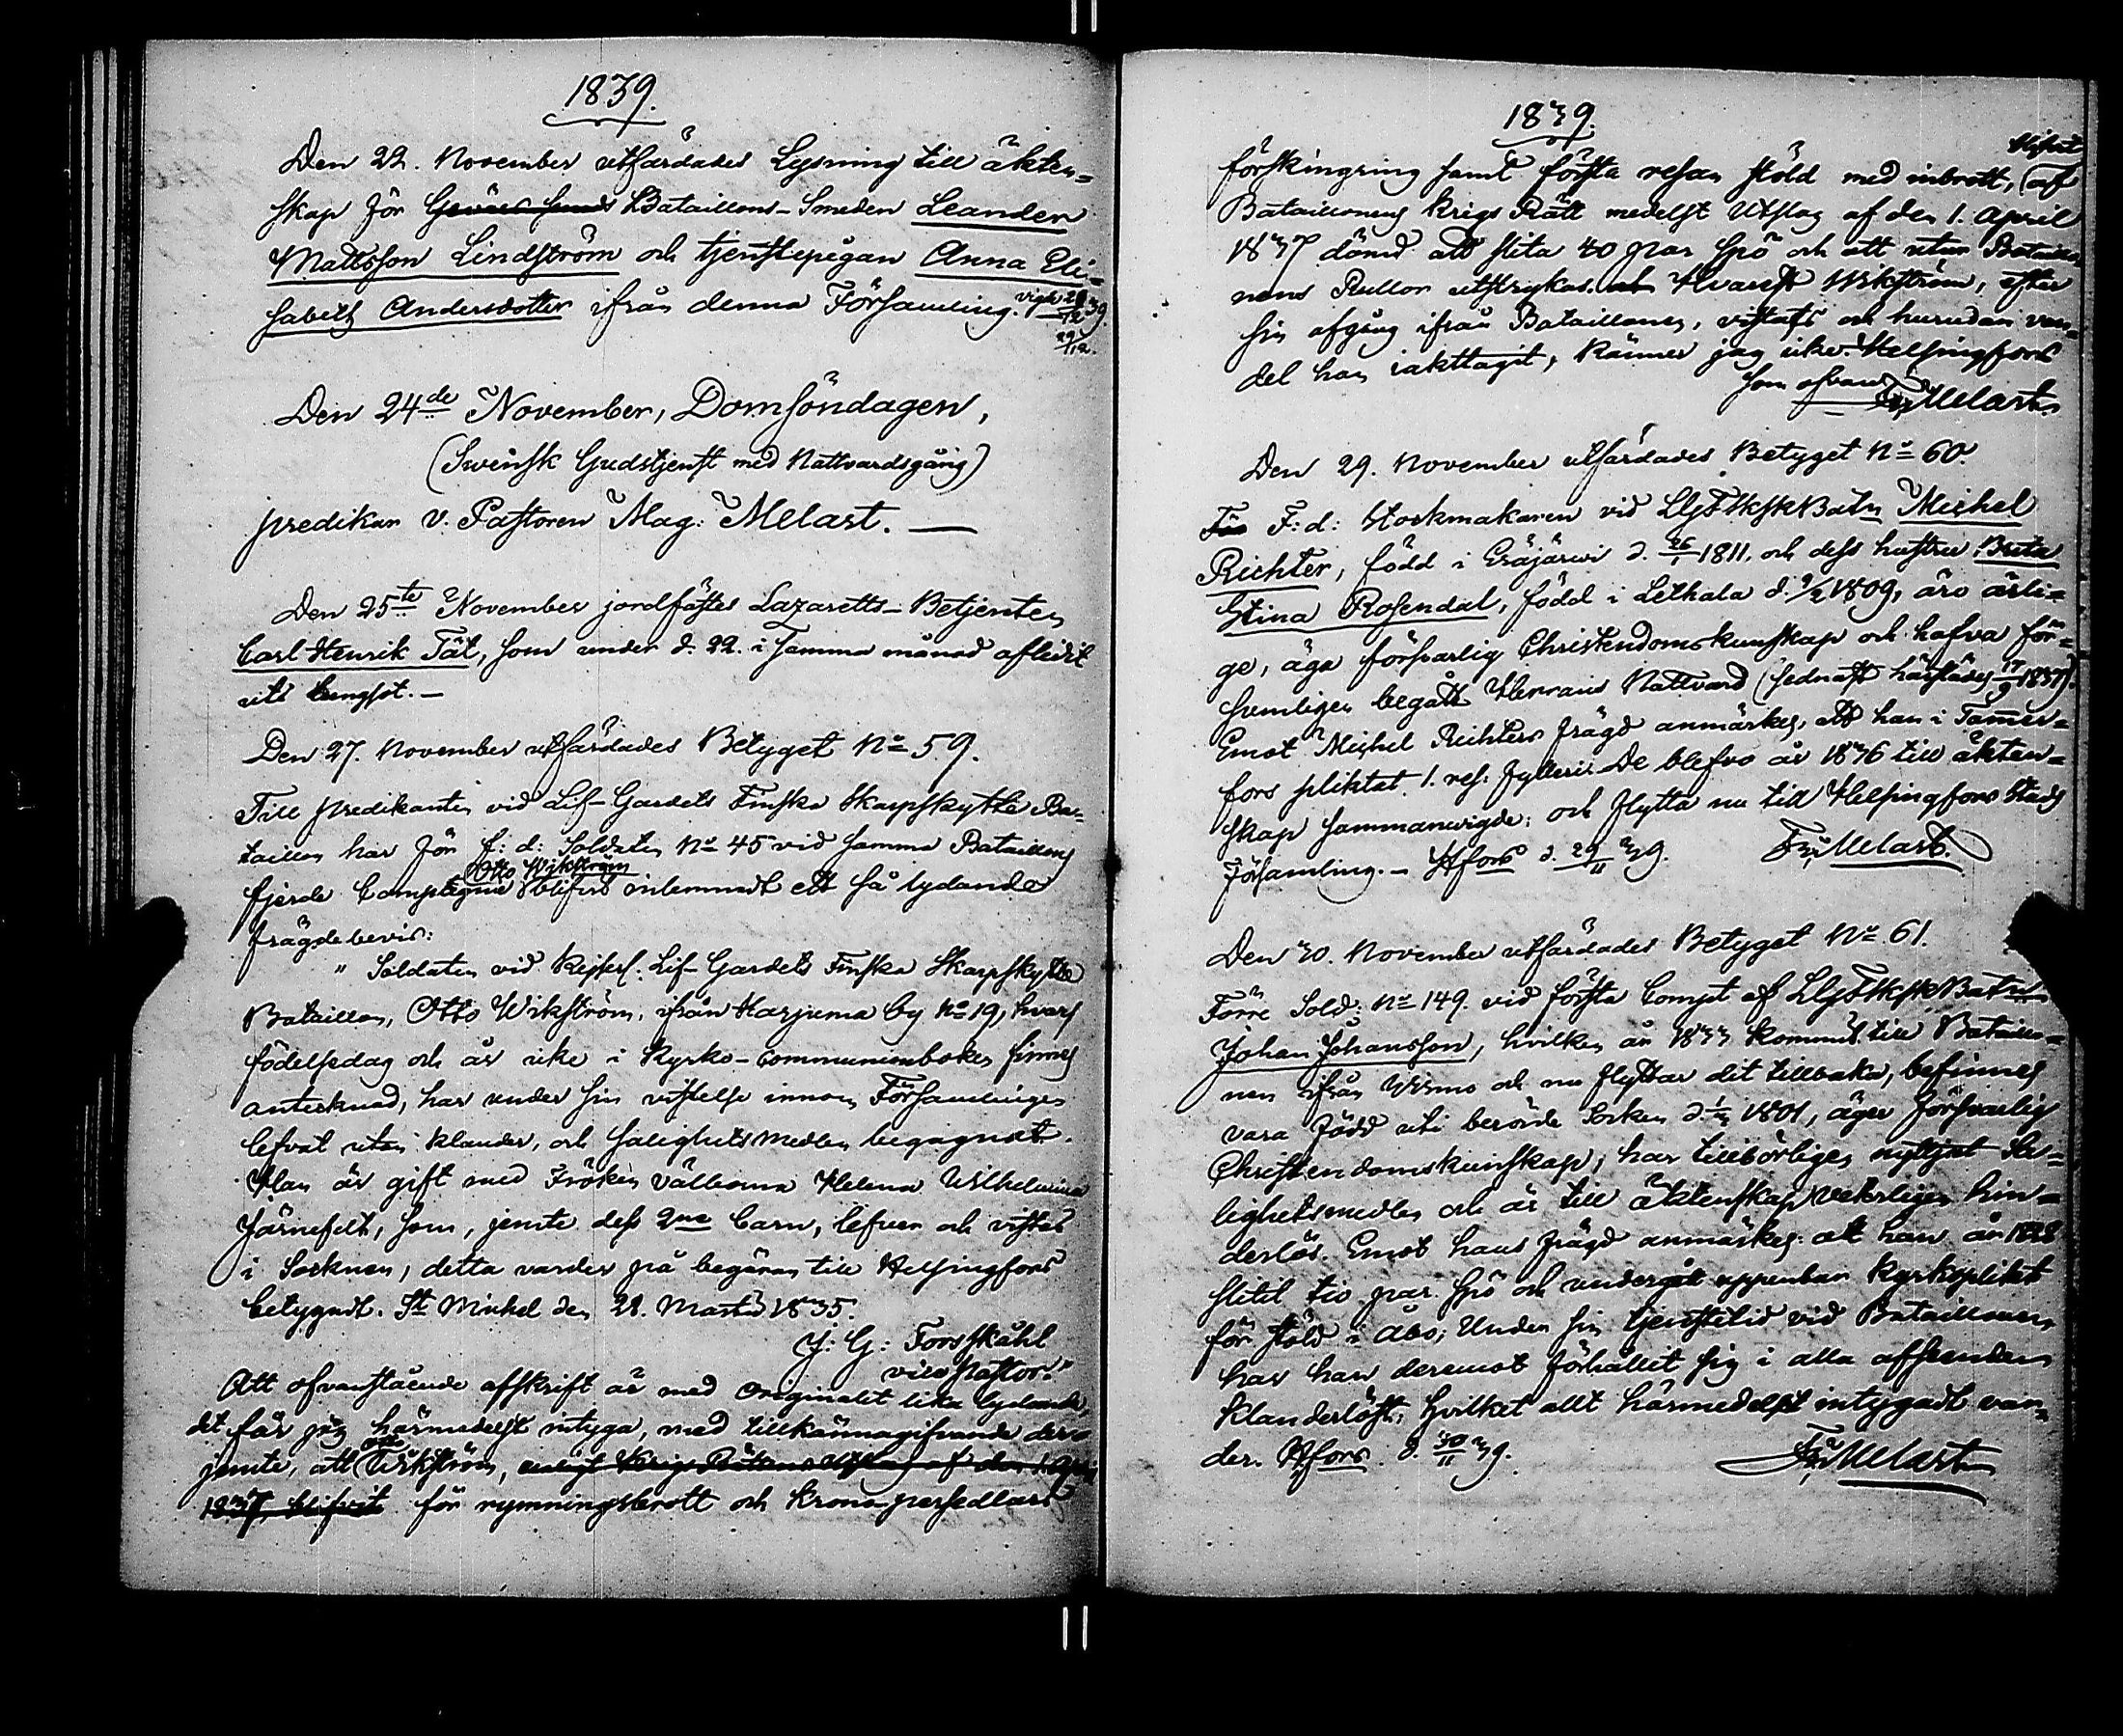 1839.
Den 22. November utfärdades Lysning till äkten-
skap för Bataillons-Smeden Leander
Mattsson Lindström och tjenstepigan Anna Eli-
sabeth Andersdotter ifrån denna Församling. vigde 28/12 39.
29/12.
Den 24de November, Domsöndagen,
(Swensk Gudstjenst med Nattvardsgång)
predikar v. Pastoren Mag: Melart. —
Den 25te November jordfästes Lazaretts-Betjenten
Carl Henrik Tät, som under d. 22. i samma månad aflidit
uti lungsot. —
Den 27. November utfärdades Betyget No 59.
Till Predikanten vid Lif-Gardets Finska Skarpskytte Ba-
taillon har för f: d: Soldaten No 45 vid samma Bataillons
Otto Wikström
fjerde Compagnie blifvit inlemnadt ett så lydande
frägdebevis:
" Soldaten vid Kejserl. Lif-Gardets Finska Skarpskytte
Bataillon, Otto Wikström, ifrån Harjuma by No 19, hvars
födelsedag och år icke i Kyrko-Communionboken finnes
antecknad, har under sin vistelse innom Församlingen
lefvat utan klander, och salighetsmedlen begagnat.
Han är gift med Fröken välborna Helena Wilhelmina
Järnefelt, som, jemte dess 2ne barn, lefver och vistas
i Socknen, detta varder på begäran till Helsingfors
betygadt. St Michel den 28. Martii 1835.
J: G: Forsskåhl
vice Pastor."
Att ofvanstående afskrift är med Originalet lika lydande,
det får jag härmedelst intyga, med tillkännagifvande der-
jemte, att Otto Wikström, enligt Krigs Rättens Utslag af den 1 April
1837, blifvit för rymningsbrott och Krono-persedlars
1839.
blifvit
förskingring samt första resan stöld med inbrott, af
Bataillonens Krigs Rätt medelst Utslag af den 1. April
1837 dömd att slita 40 par spö och att utur Bataillo-
nens Rullor utstrykas. Hvarest Wikström, efter
sin afgång ifrån Bataillonen, vistats och hurudan van-
del han iakttagit, känner jag icke. Helsingfors
som ofvan
Fr: Melart.
Den 29. November utfärdades Betyget No 60.
F: d: Stockmakaren vid LGFSkskBatn Michel
Richter, född i Gräjärwi d. 26/1 1811. och dess hustru Brita
Stina Rosendal, född i Lethala d. 9/2 1809, äro ärli-
ge, äga försvarlig Christendomskunskap och hafva för-
sumligen begått Herrans Nattvard (sednast härstädes 17/9 1837).
Emot Michel Richters frägd anmärkes, att han i Tammer-
fors pliktat 1. res: fylleri. De blefvo år 1836 till äkten-
skap sammanvigde: och flytta nu till Helsingfors Stads
Församling. — Hfors d. 29/11 39. Fr: Melart.
Den 30. November utfärdades Betyget No 61.
Förre Sold: No 149. vid första Comp: af LGFSkskBatn
Johan Johansson, hvilken år 1833 kommit till Bataillo-
nen ifrån Wirmo och nu flyttar dit tillbaka, befinnes
vara född uti berörde Socken d. 1801, äger försvarlig
Christendomskunskap, har tillbörligen nyttjat Sa-
lighetsmedlen och är till äktenskap veterligen hin-
derlös. Emot hans frägd anmärkes: att han år 1828
slitit tio par spö och undergått uppenbar Kyrkoplikt
för stöld i Åbo; Under sin tjenstetid vid Bataillonen
har han deremot förhållit sig i alla afseenden
klanderlöst; hvilket allt härmedelst intygadt var-
der. Hfors d. 30/11 39.
Fr: Melart